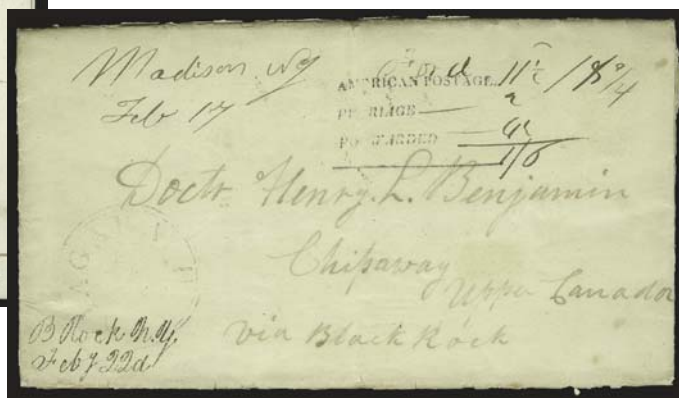 Madison NY
Feb 17
AMERICAN POSTAGE 11½ / 18¾
FERRIAGE 2
FORWARDED 4½
1/6
Doctr Henry. L. Benjamin
Chipaway
Upper Canada
via Black Rock
B Rock N.Y.
Feby 22d